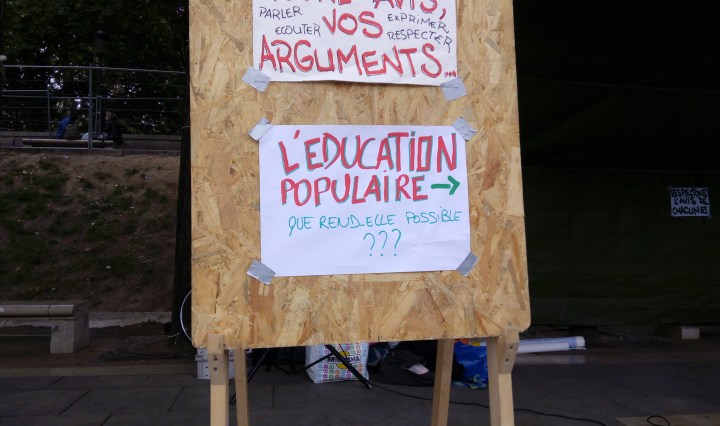 AVIS,
PARLER
EXPRIMER
ECOUTER VOS RESPECTER
ARGUMENTS...
L'EDUCATION
POPULAIRE →
QUE REND-ELLE POSSIBLE
???
L'AVIS DE
CHACUN.ES